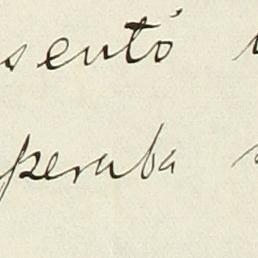 sentó
peraba